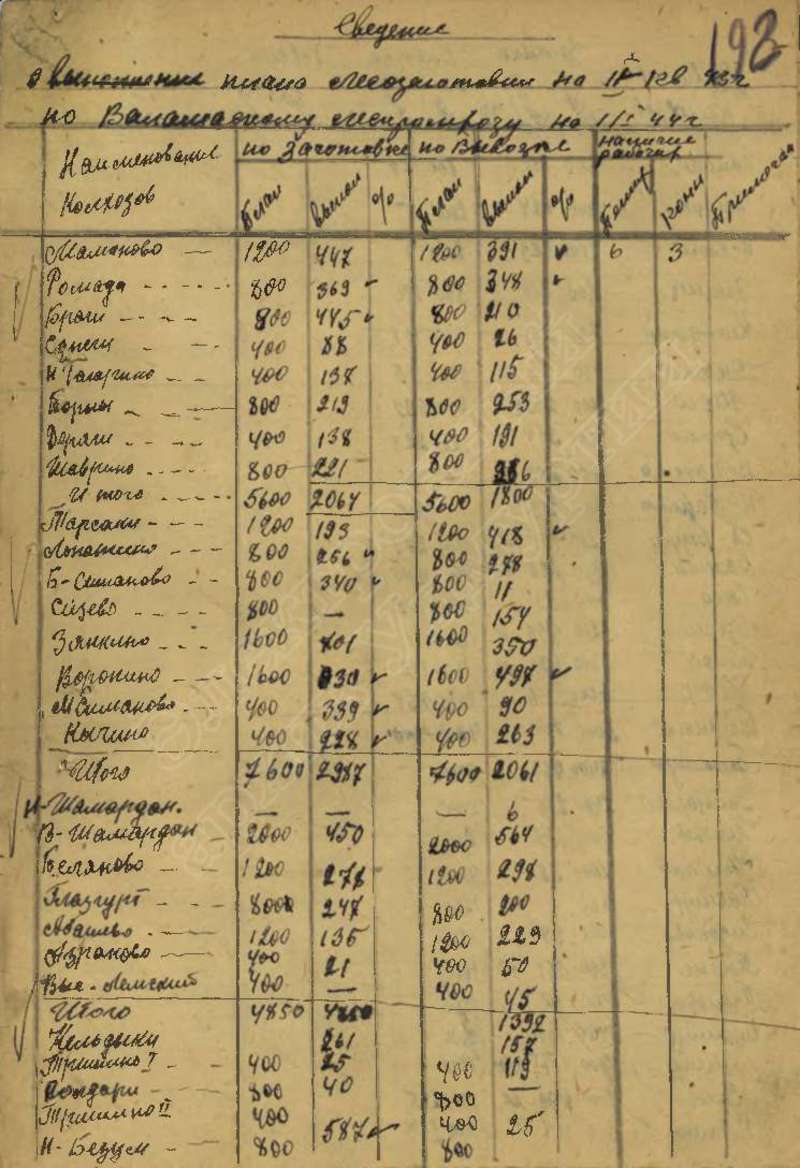 Сведение
193
о выполнении плана лесозаготовки на IV кв 43 г
по Валамазскому леспромхозу на 1/I 44 г
Наименование Колхозов по Заготовке по Вывозке наличие рабочих
План Выпол % План Выпол % Пеших кони
Мамоново — 1200 447 1200 391 ✓ 6 3
Ромада 800 369 ✓ 800 348 ✓
Браш 800 445 ✓ 800 210
400 88 400 26
400 137 400 115
Борки 800 219 800 253
400 138 400 191
Шаврино 800 221 800 256
Итого 5600 2064 5600 1800
1200 193 1200 418 ✓
800 256 ✓ 800 278
Б-Симаново 800 340 ✓ 800 11
Сизево 800 — 800 154
Зянкино 1600 401 1600 350
Воронино 1600 830 ✓ 1600 497 ✓
М Симаново 400 339 ✓ 400 90
Кычино 400 228 ✓ 400 263
Итого 7600 2987 7600 2061
Н-Шамардан. — — — 6
В-Шамардан 2000 450 2000 564
Беляново 1200 1200 298
800 247 800 200
1200 135 1200 223
400 21 400 50
400 — 400 45
Итого 4850 1392
Кельдыки 261 157
Тришино I 400 25 400 119
Бондари 800 40 800 —
Тришино II 400 400 25
Н-Безум 800 587 ✓ 800